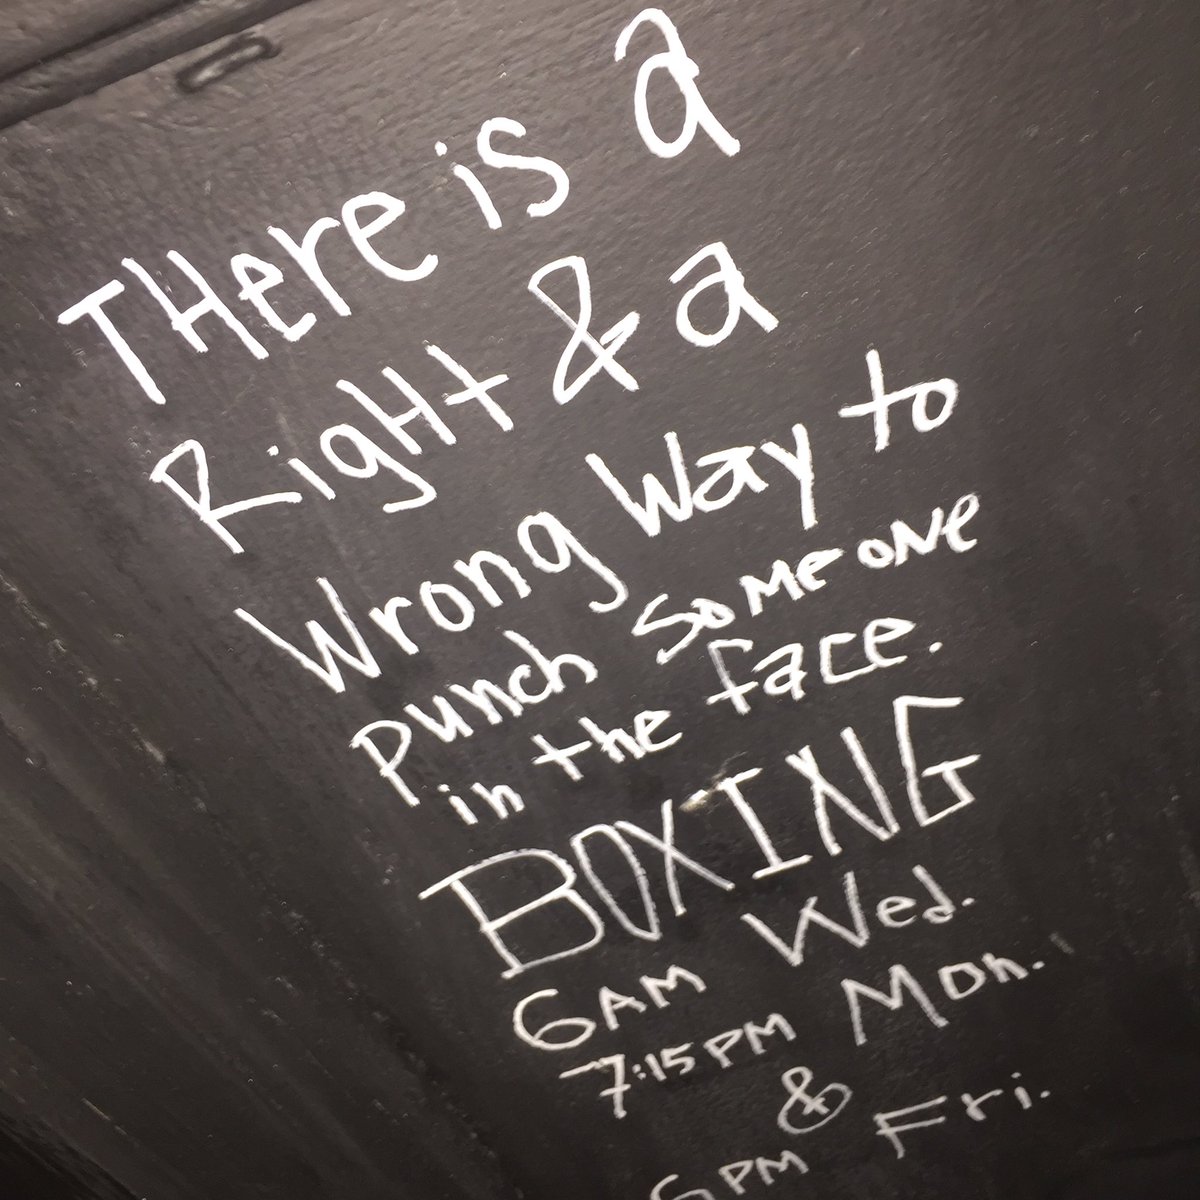 THere is a
RigHt & a
Wrong Way to
punch someone
in the face.
BOXING
6AM Wed.
7:15PM Mon.
&
6PM Fri.